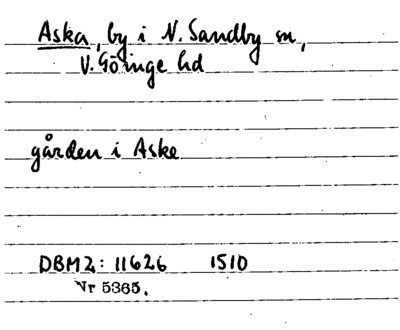 Aska, by i N. Sandby sn,
V. Göinge hd
gården i Aske
DBM2: 11626 1510
Nr 5365.